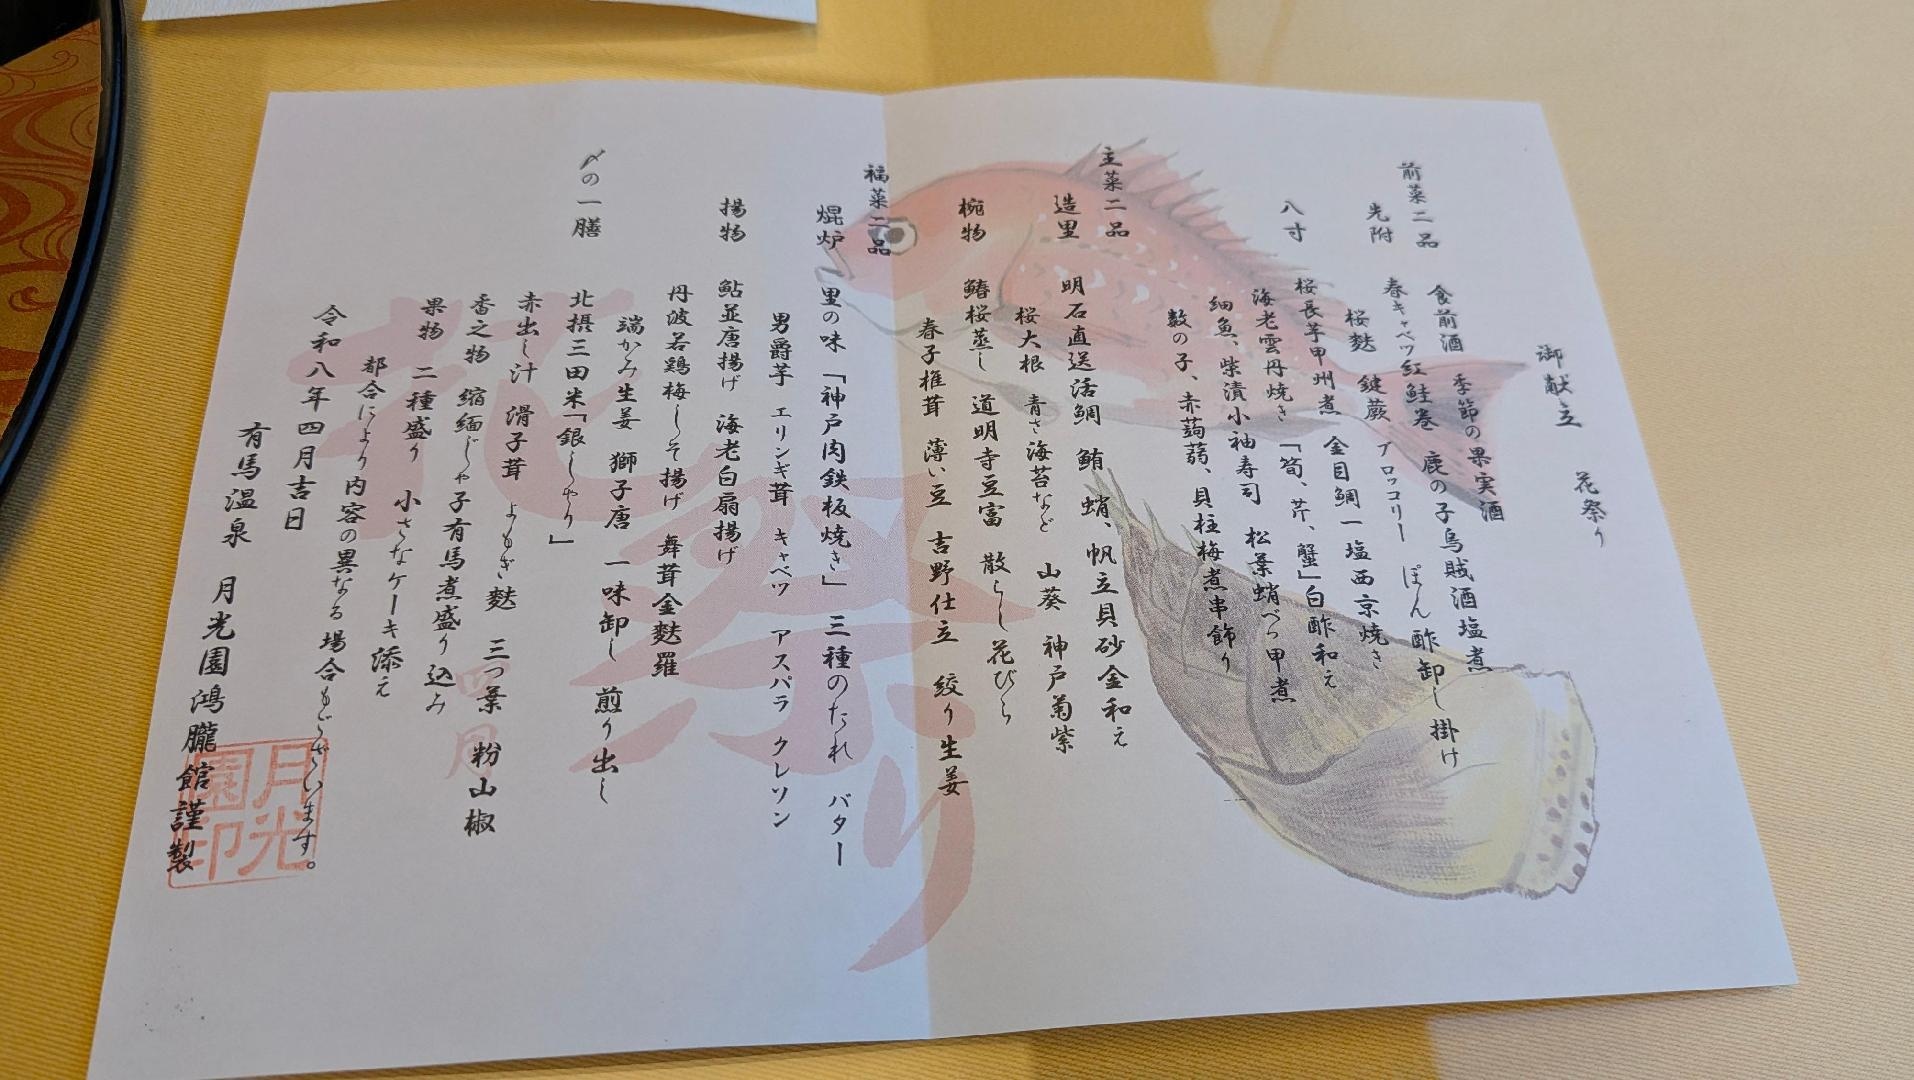 御献立　花祭り
前菜二品
食前酒　季節の果実酒
先附　春キャベツ紅鮭巻　鹿の子烏賊酒塩煮
桜麩　鍵蕨　ブロッコリー　ぽん酢卸し掛け
八寸　桜長芋甲州煮　金目鯛一塩西京焼き
海老雲丹焼き　「筍、芹、蟹」白酢和え
細魚、柴漬小袖寿司　松葉蛸べっ甲煮
数の子、赤蒟蒻、貝柱梅煮串飾り
主菜二品
造里　明石直送活鯛　鮪　蛸、帆立貝砂金和え
桜大根　青さ海苔など　山葵　神戸菊紫
椀物　鰆桜蒸し　道明寺豆富　散らし花びら
春子椎茸　薄い豆　吉野仕立　絞り生姜
福菜二品
焜炉　里の味「神戸肉鉄板焼き」　三種のたれ　バター
男爵芋　エリンギ茸　キャベツ　アスパラ　クレソン
揚物　鮎並唐揚げ　海老白扇揚げ
丹波若鶏梅しそ揚げ　舞茸金麩羅
端かみ生姜　獅子唐　一味卸し　煎り出し
〆の一膳　北摂三田米「銀しゃり」
赤出し汁　滑子茸　よもぎ麩　三つ葉　粉山椒
香之物　縮緬じゃ子有馬煮盛り込み
果物　二種盛り　小さなケーキ添え
都合により内容の異なる場合もございます。
令和八年四月吉日
有馬温泉　月光園鴻朧館謹製
花祭り
四月
月光園印